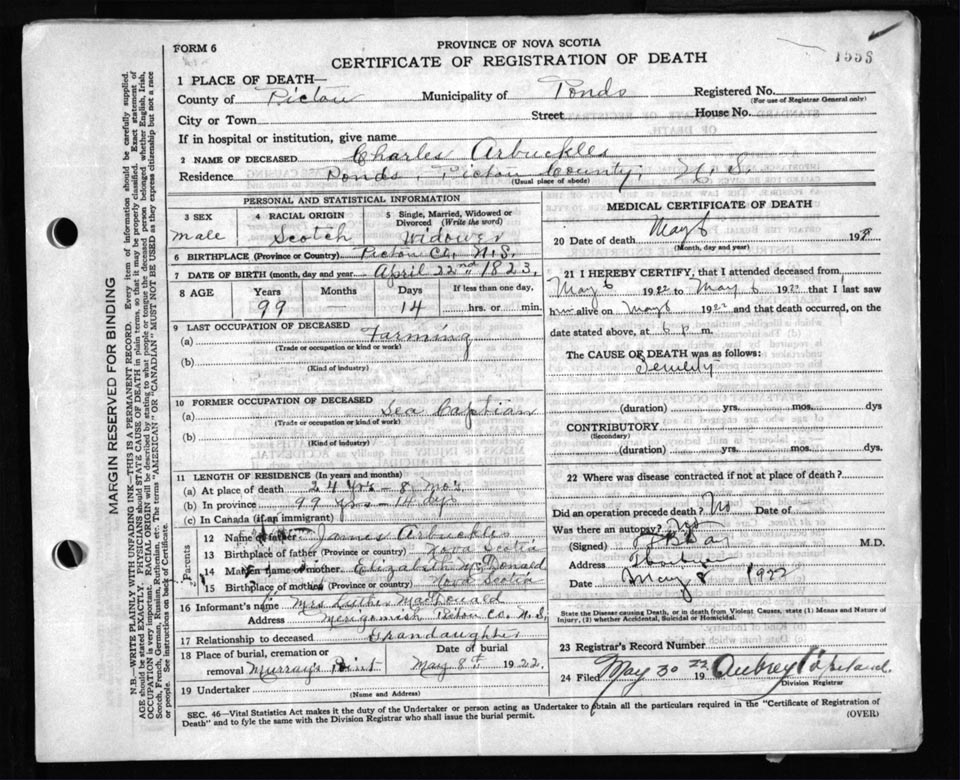 FORM 6
PROVINCE OF NOVA SCOTIA
CERTIFICATE OF REGISTRATION OF DEATH
1553
1 PLACE OF DEATH—
County of Pictou Municipality of Ponds Registered No.
(For use of Registrar General only)
City or Town Street House No.
If in hospital or institution, give name
2 NAME OF DECEASED Charles Arbuckles
Residence Ponds Pictou County, N. S.
(Usual place of abode)
PERSONAL AND STATISTICAL INFORMATION
3 SEX
male
4 RACIAL ORIGIN
Scotch
5 Single, Married, Widowed or Divorced (Write the word)
Widower
6 BIRTHPLACE (Province or Country) Pictou Co. N.S.
7 DATE OF BIRTH (month, day and year) April 22nd 1823.
8 AGE Years Months Days If less than one day,
99 — 14 hrs. or min.
9 LAST OCCUPATION OF DECEASED
(a) Farming
(Trade or occupation or kind or work)
(b)
(Kind of industry)
10 FORMER OCCUPATION OF DECEASED
(a) Sea Captian
(Trade or occupation or kind of work)
(b)
(Kind of industry)
11 LENGTH OF RESIDENCE (In years and months)
(a) At place of death 24 yrs - 8 mo's
(b) In province 99 yrs - 14 dys
(c) In Canada (if an immigrant)
Parents
12 Name of father James Arbuckles
13 Birthplace of father (Province or country) Nova Scotia
14 Maiden name of mother. Elizabeth McDonald
15 Birthplace of mother (Province or country) Nova Scotia
16 Informant's name Mrs Luther MacDonald
Address Merigomish Pictou Co. N.S.
17 Relationship to deceased Grandaughter
18 Place of burial, cremation or Date of burial
removal Murray's Point May 8th 1922.
19 Undertaker
(Name and Address)
MEDICAL CERTIFICATE OF DEATH
20 Date of death May 6 192
(Month, day and year)
21 I HEREBY CERTIFY, that I attended deceased from
May 6 1922 to May 6 1922 that I last saw
him alive on May 6 1922 and that death occurred, on the
date stated above, at 6 p. m.
The CAUSE OF DEATH was as follows:
Senility
(duration) yrs. mos. dys
CONTRIBUTORY
(Secondary)
(duration) yrs. mos. dys.
22 Where was disease contracted if not at place of death?
Did an operation precede death? No Date of
Was there an autopsy? No
(Signed) M.D.
Address
Date May 8 1922
State the Disease causing Death, or in death from Violent Causes, state (1) Means and Nature of
Injury, (2) whether Accidental, Suicidal or Homicidal.
23 Registrar's Record Number
24 Filed May 30 1922 Aubrey Copeland.
Division Registrar
SEC. 46—Vital Statistics Act makes it the duty of the Undertaker or person acting as Undertaker to obtain all the particulars required in the "Certificate of Registration of
Death" and to fyle the same with the Division Registrar who shall issue the burial permit.
(OVER)
MARGIN RESERVED FOR BINDING
N.B.—WRITE PLAINLY WITH UNFADING INK—THIS IS A PERMANENT RECORD. Every item of information should be carefully supplied.
AGE should be stated EXACTLY. PHYSICIANS should STATE CAUSE OF DEATH in plain terms, so that it may be properly classified. Exact statement of
OCCUPATION is very important. RACIAL ORIGIN will be described by stating to what people or tongue the deceased person belonged whether English, Irish,
Scotch, French, German, Russian, Ruthenian, etc. The terms "AMERICAN" or "CANADIAN" MUST NOT BE USED as they express citizenship but not a race
or people. See instructions on back of Certificate.